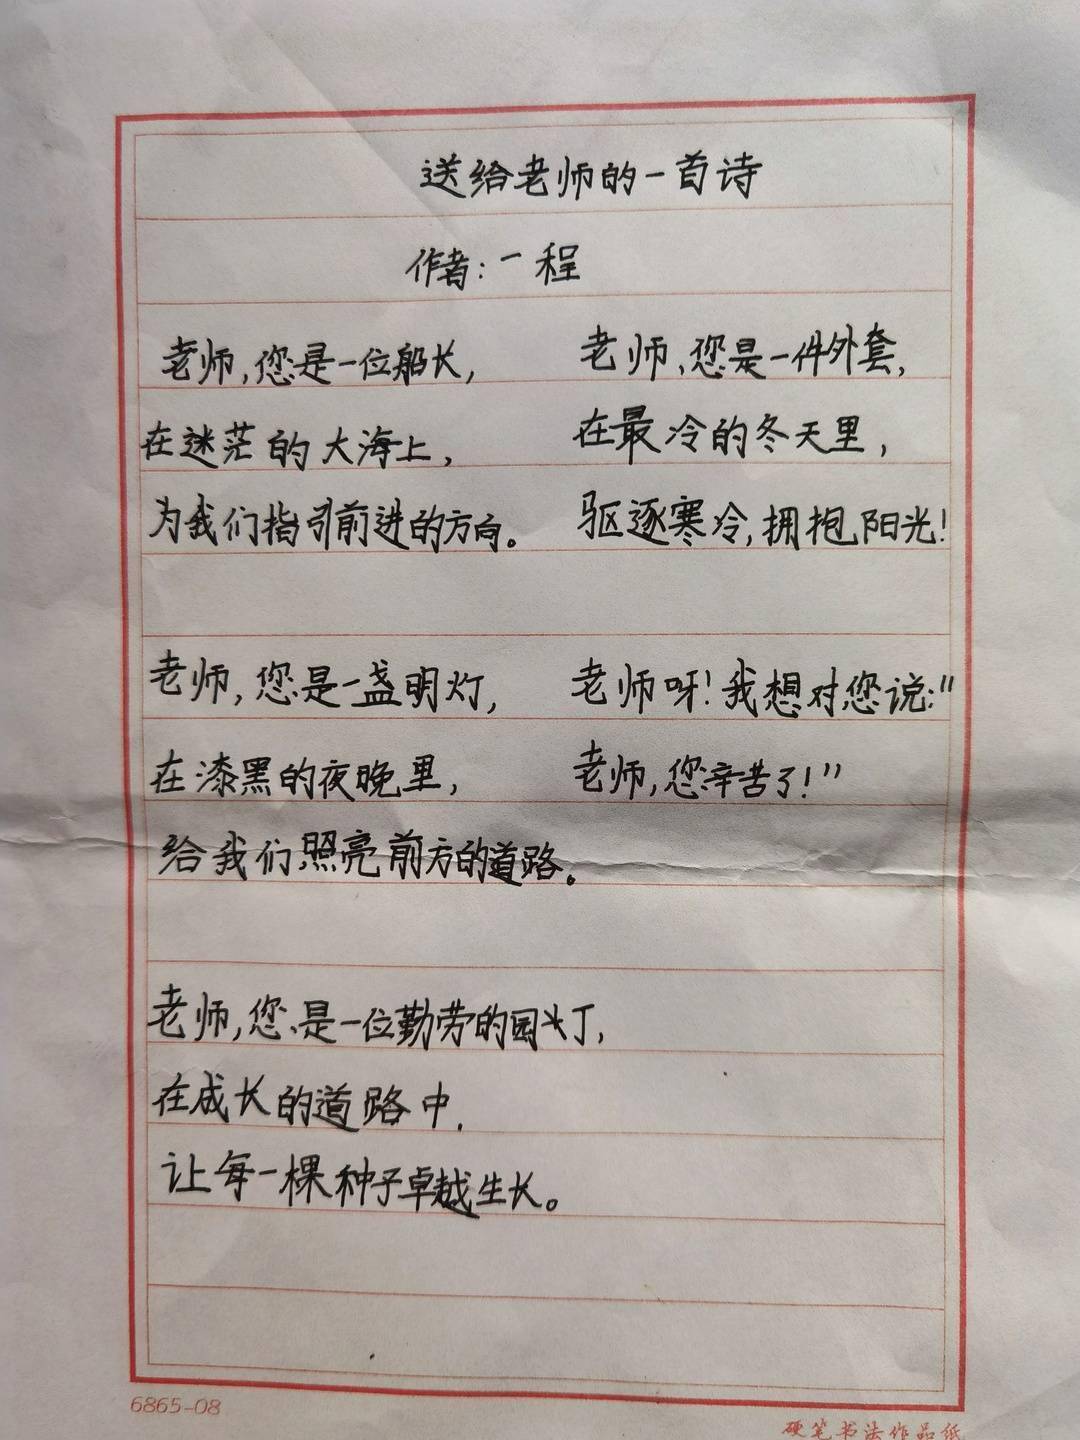 送给老师的一首诗
作者:一程
老师,您是一位船长,
在迷茫的大海上,
为我们指引前进的方向。
老师,您是一盏明灯,
在漆黑的夜晚里,
给我们照亮前方的道路。
老师,您是一位勤劳的园丁,
在成长的道路中,
让每一棵种子卓越生长。
老师,您是一件外套,
在最冷的冬天里,
驱逐寒冷,拥抱阳光!
老师呀!我想对您说:"
老师,您辛苦了!"
6865-08
硬笔书法作品纸